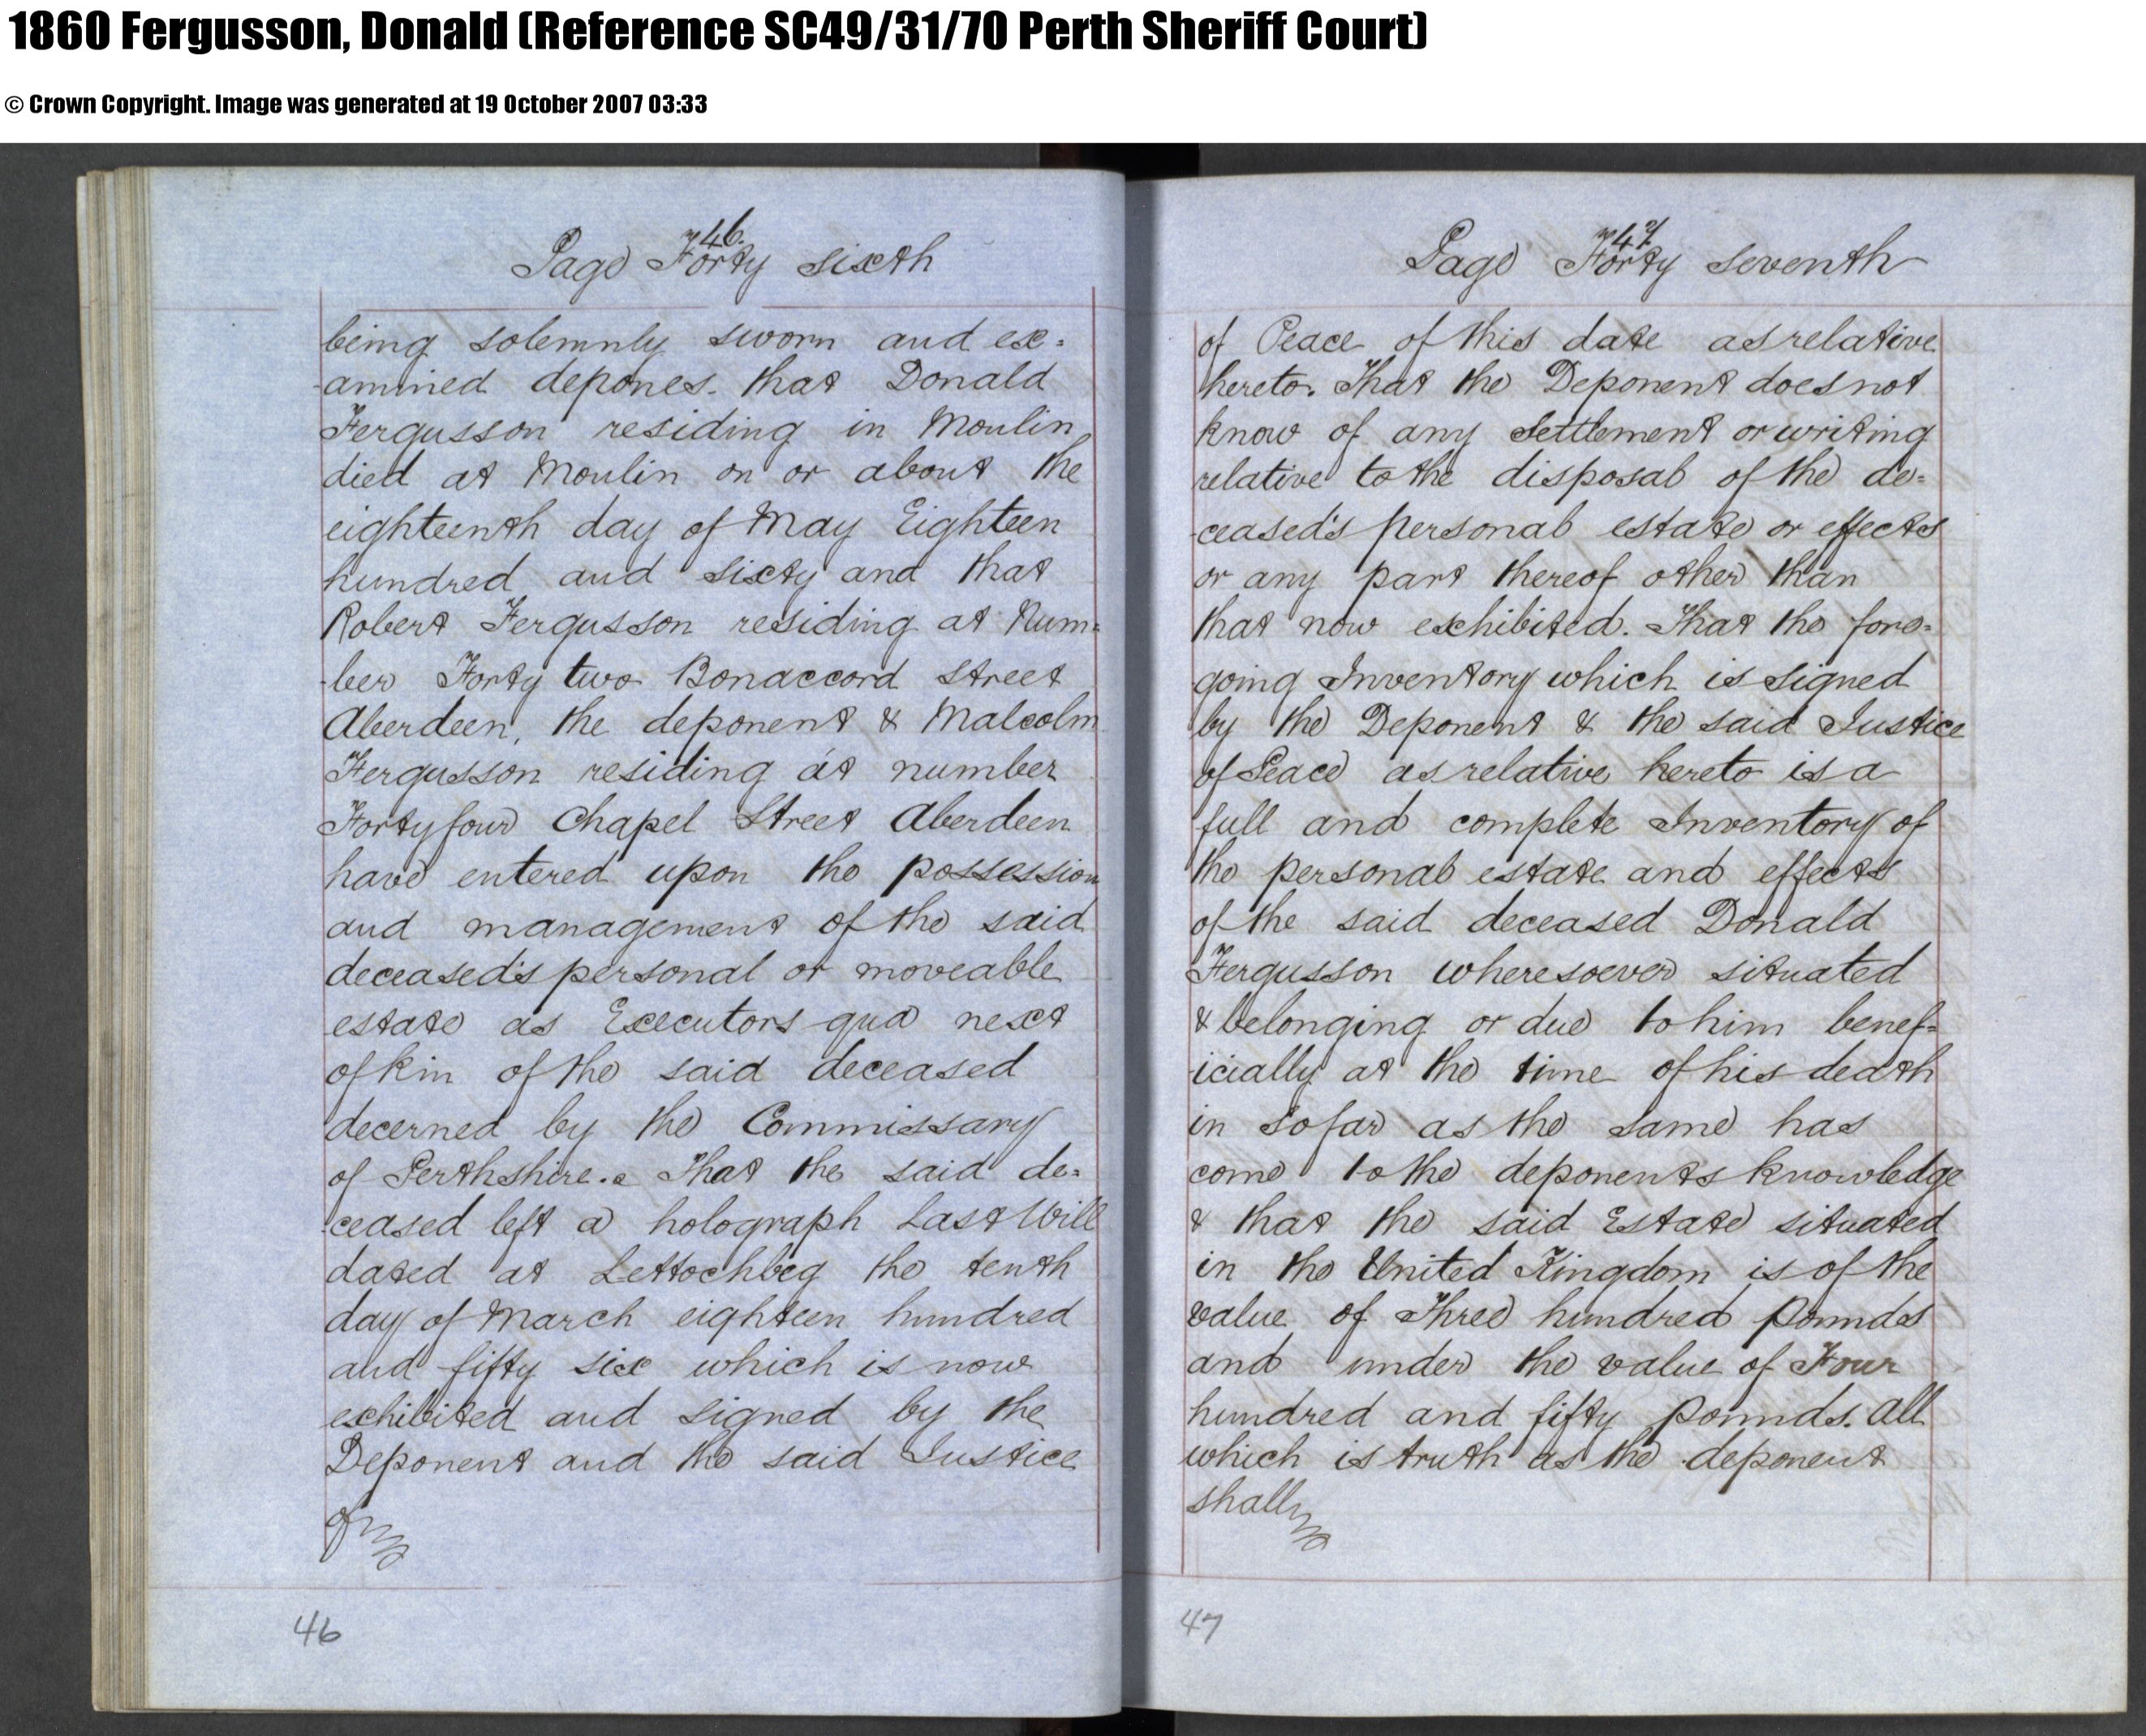 1860 Fergusson, Donald (Reference SC49/31/70 Perth Sheriff Court)
© Crown Copyright. Image was generated at 19 October 2007 03:33
46.
Page Forty sixth
being solemnly sworn and ex=
-amined depones. that Donald
Fergusson residing in Moulin
died at Moulin on or about the
eighteenth day of May Eighteen
hundred and sixty and that
Robert Fergusson residing at Num=
-ber Forty two Bonaccord Street
Aberdeen, the deponent & Malcolm
Fergusson residing at number
Forty four Chapel Street Aberdeen
have entered upon the possession
and management of the said
deceased's personal or moveable
estate as Executors qua next
of kin of the said deceased
decerned by the Commissary
of Perthshire. That the said de=
-ceased left a holograph Last Will
dated at Lettochbeg the tenth
day of March eighteen hundred
and fifty six which is now
exhibited and signed by the
Deponent and the said Justice
of
46
47
Page Forty seventh
of Peace of this date as relative
hereto. That the Deponent does not
know of any Settlement or writing
relative to the disposal of the de=
-ceased's personal estate or effects
or any part thereof other than
that now exhibited. That the fore=
going Inventory which is signed
by the Deponent & the said Justice
of Peace as relative hereto is a
full and complete Inventory of
the personal estate and effects
of the said deceased Donald
Fergusson wheresoever situated
& belonging or due to him benef=
-icially at the time of his death
in so far as the same has
come to the deponents knowledge
& that the said Estate situated
in the United Kingdom is of the
value of Three hundred pounds
and under the value of Four
hundred and fifty pounds. All
which is truth as the deponent
shall
47